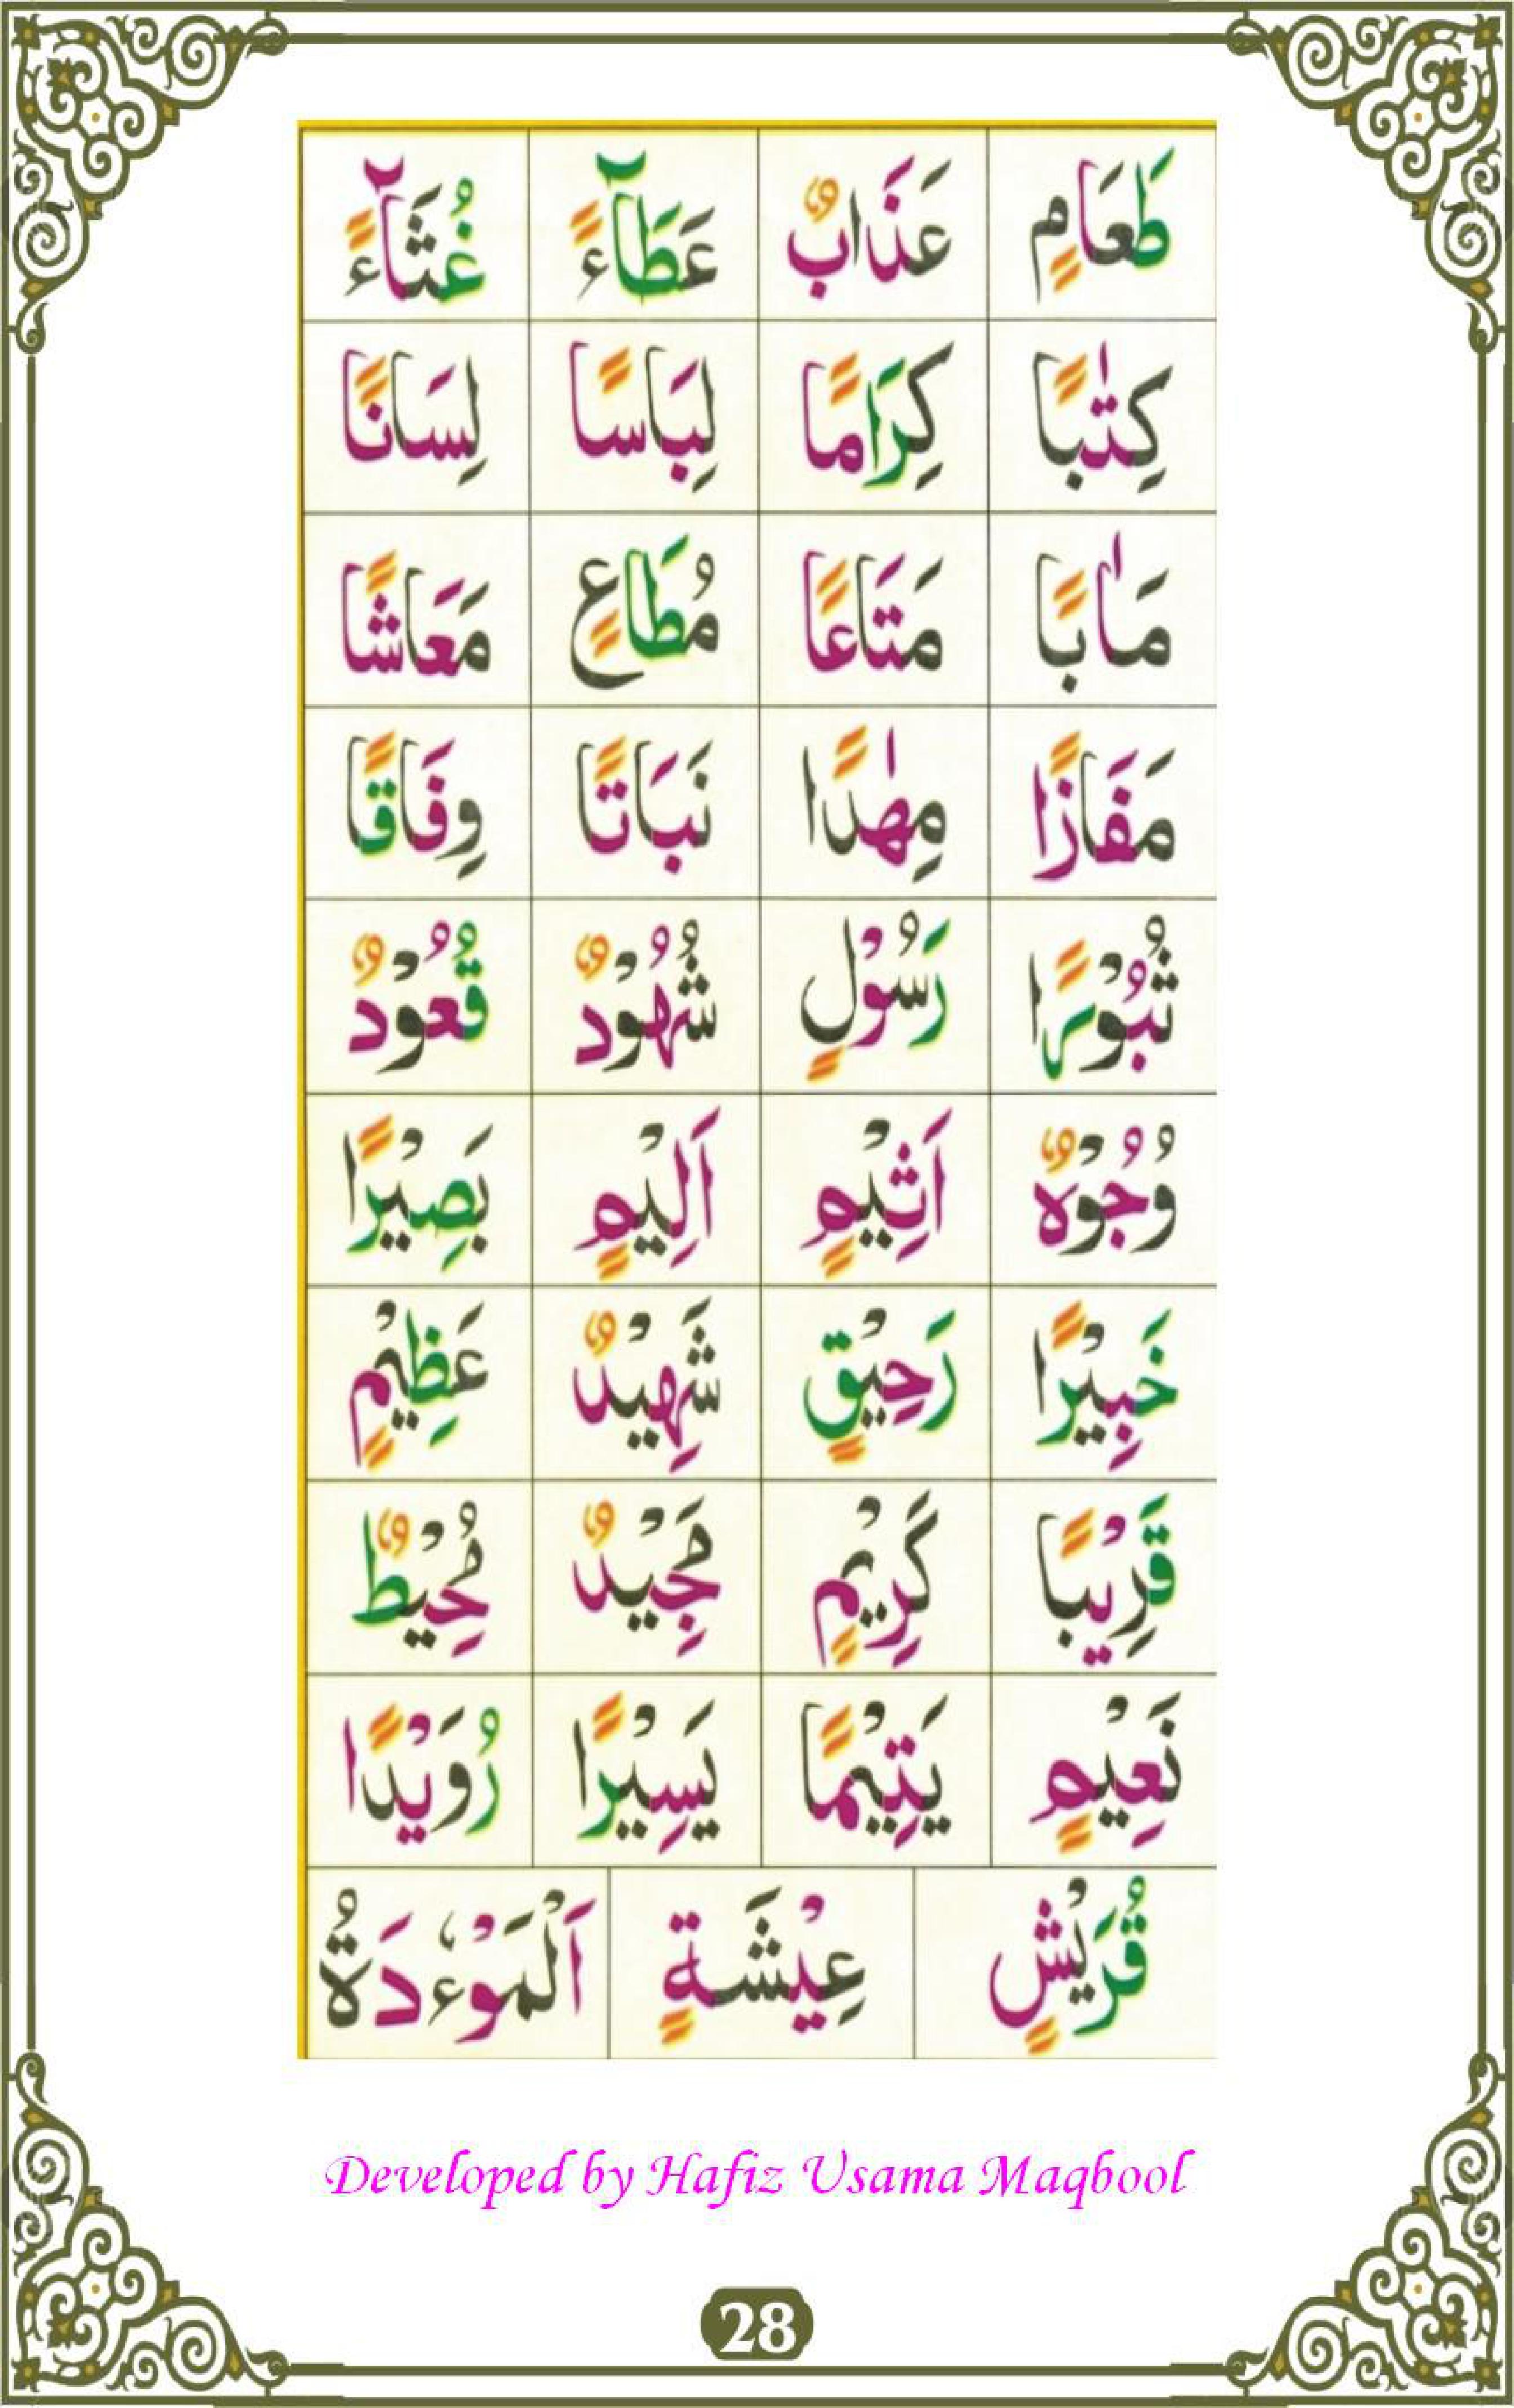 طَعَامٍ عَذَابٌ عَطَآءً غُثَآءً
كِتٰبًا كِرَامًا لِبَاسًا لِسَانًا
مَاٰبًا مَتَاعًا مُطَاعٍ مَعَاشًا
مَفَازًا مِهٰدًا نَبَاتًا وِفَاقًا
ثُبُوْرًا رَسُوْلٍ شُهُوْدٌ قُعُوْدٌ
وُجُوْهٌ اَثِيْمٍ اَلِيْمٍ بَصِيْرًا
خَبِيْرًا رَحِيْقٍ شَهِيْدٌ عَظِيْمٍ
قَرِيْبًا كَرِيْمٍ مَجِيْدٌ مُحِيْطٌ
نَعِيْمٍ يَتِيْمًا يَسِيْرًا رُوَيْدًا
قُرَيْشٍ عِيْشَةٍ اَلْمَوْءٗدَةُ
Developed by Hafiz Usama Maqbool
28